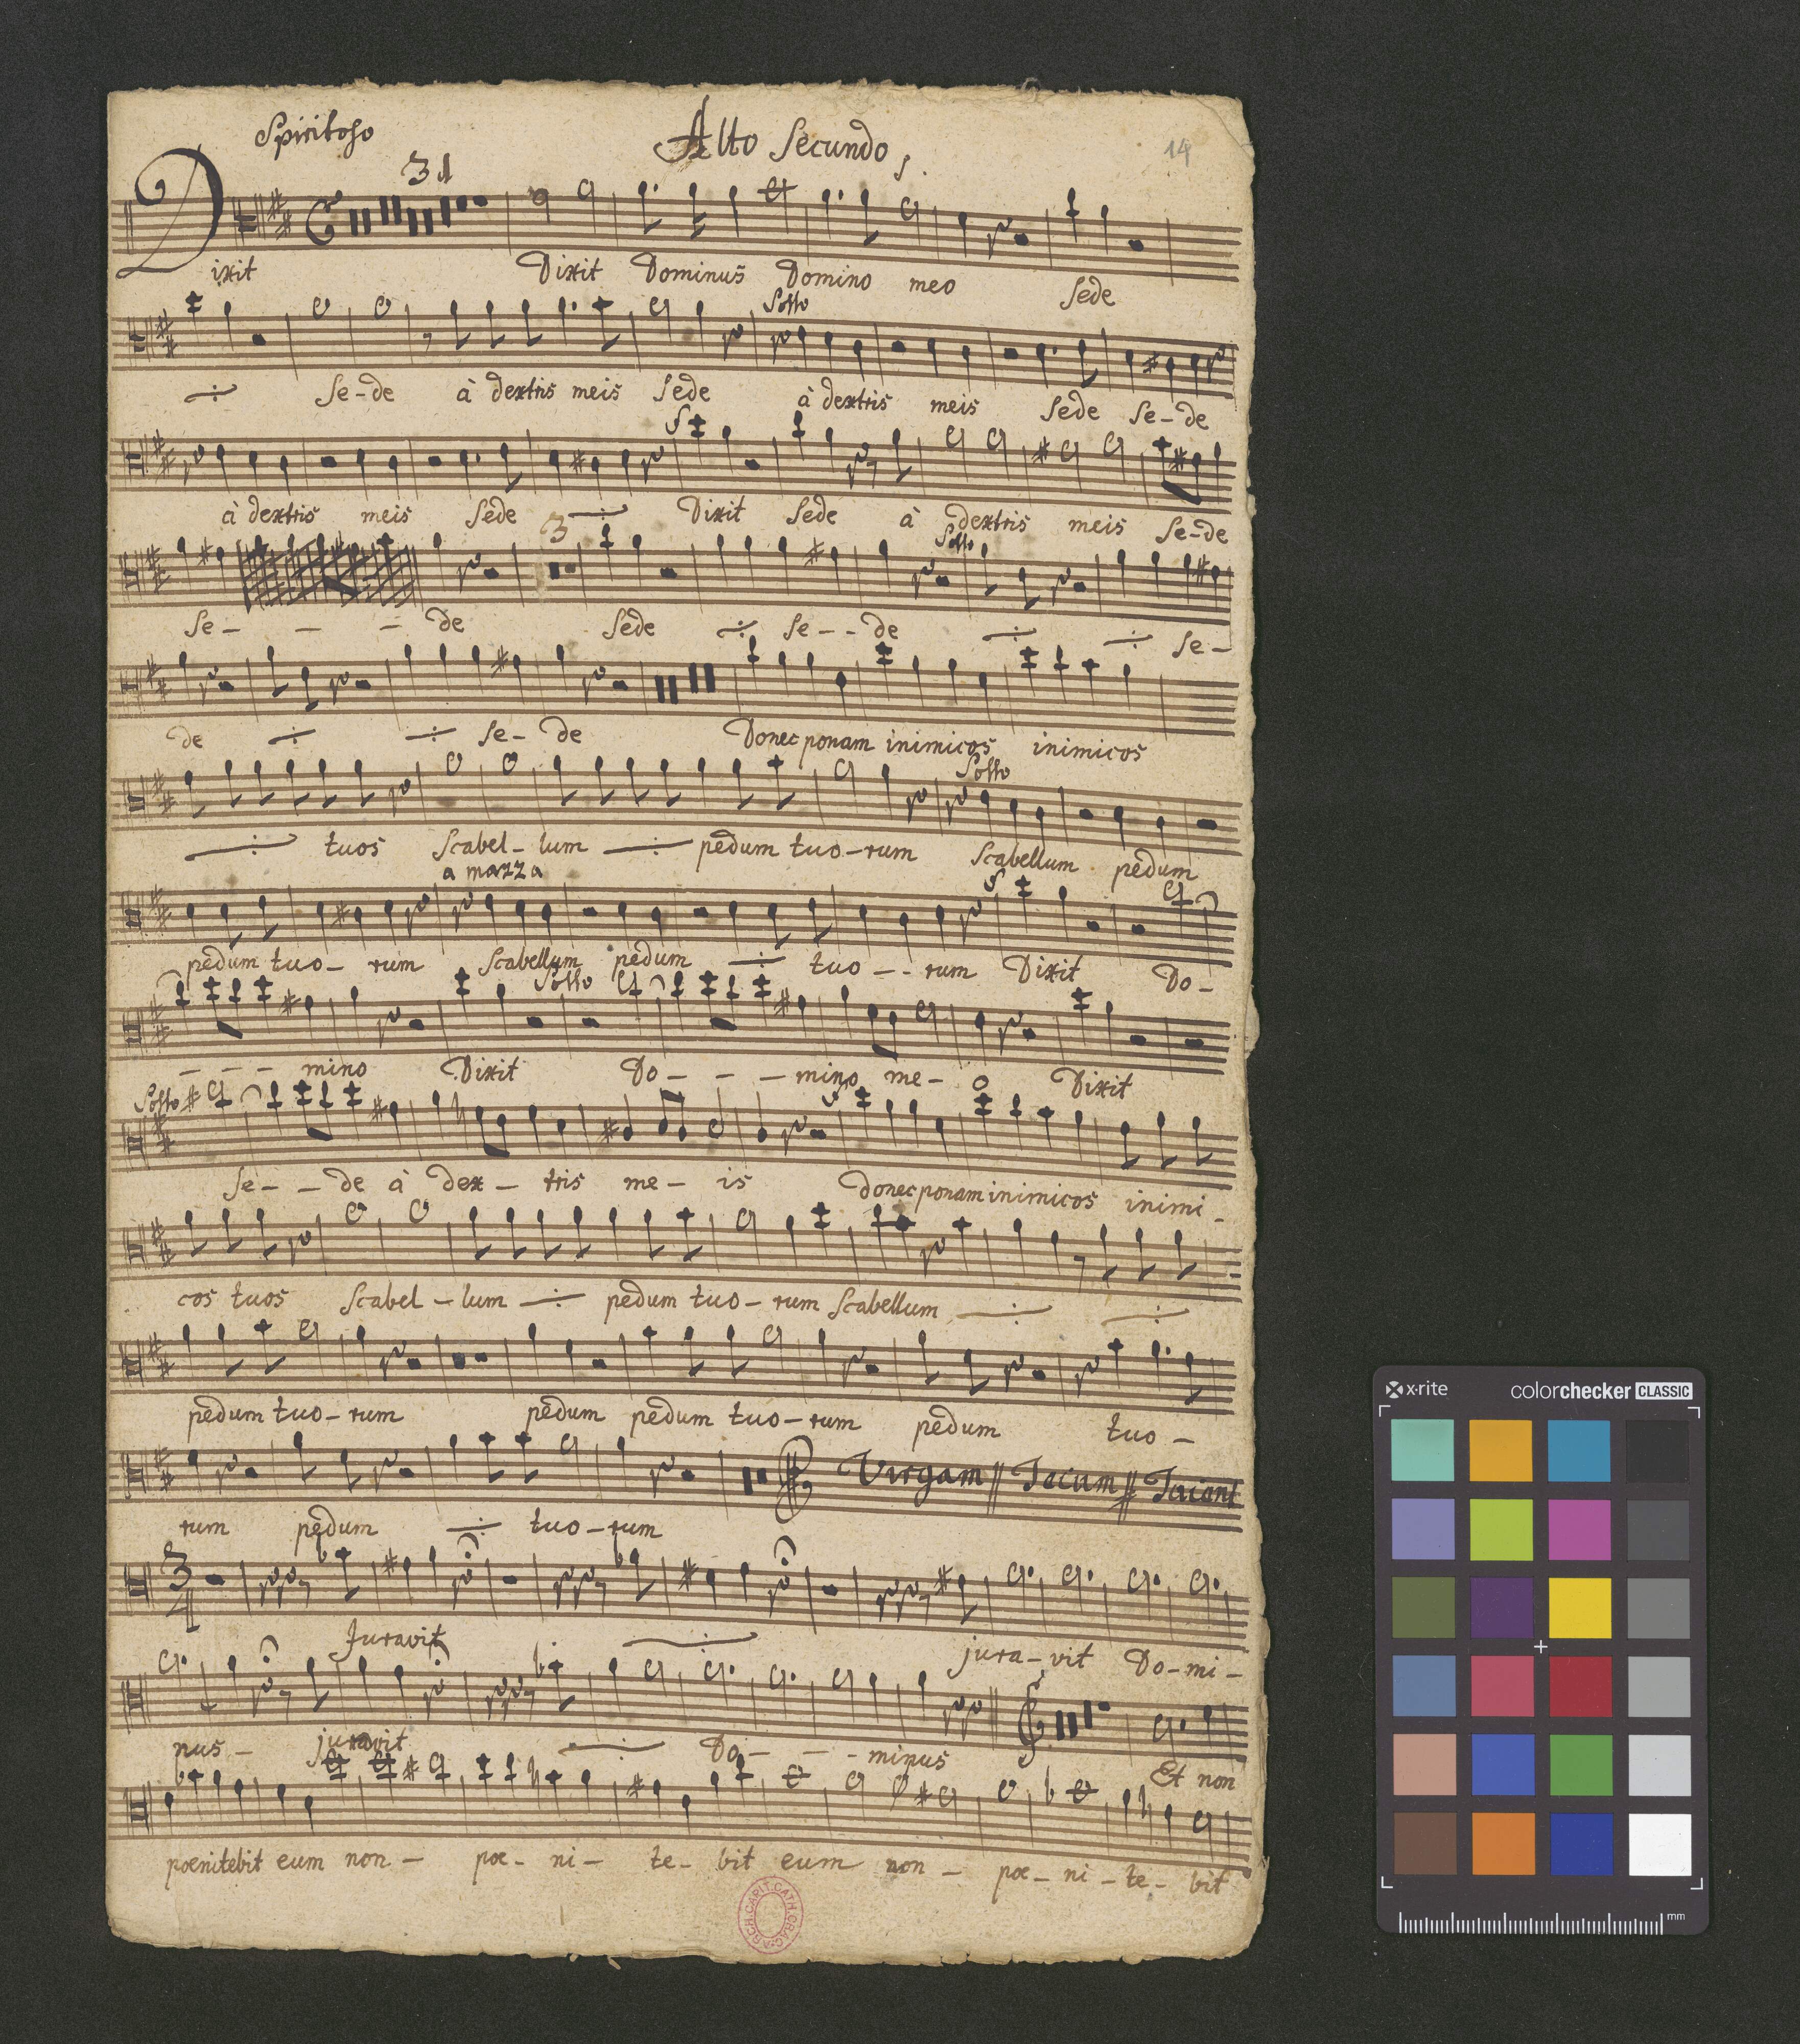 Spiritoso Alto Secundo 14
31
Dixit Dixit Dominus Domino meo Sede
Sotto
Se-de à dextris meis Sede à dextris meis Sede Se-de
à dextris meis Sede Dixit Sede à dextris meis Se-de
3 Sotto
Se- - - de Sede Se--de Se-
de Se-de Donec ponam inimicos inimicos
Sotto
tuos Scabel-lum pedum tuo-rum Scabellum pedum
a mazza
pedum tuo-rum Scabellum pedum tuo--rum Dixit Do-
Sotto
- - - mino Dixit Do- - - mino me-o Dixit
Sotto
Se- - de à dex-tris me-is donec ponam inimicos inimi-
cos tuos Scabel-lum pedum tuo-rum Scabellum
pedum tuo-rum pedum pedum tuo-rum pedum tuo-
Virgam // Tecum //
rum pedum tuo-rum
3/4
Juravit jura-vit Do-mi-
nus- juravit Do- - - minus Et non
poenitebit eum non- poe-ni-te-bit eum non- poe-ni-te-bit
ARCH.CAPIT.CATH.CRAC.
x·rite colorchecker CLASSIC
mm